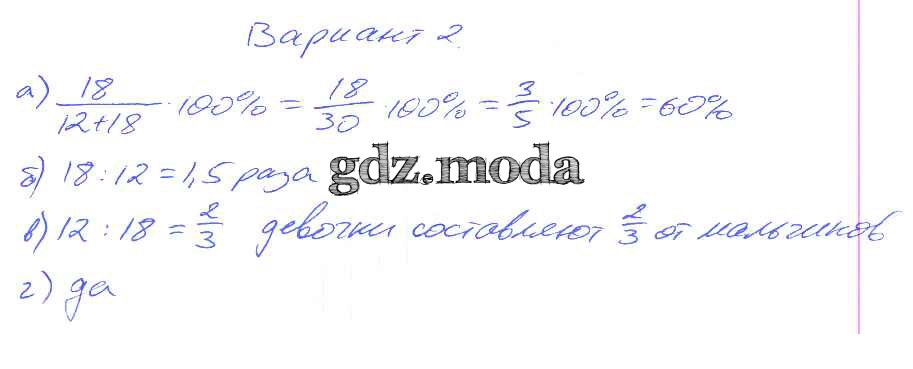 Вариант 2.
а) 18/(12+18) · 100% = 18/30 · 100% = 3/5 · 100% = 60%
б) 18 : 12 = 1,5 раза gdz.moda
в) 12 : 18 = 2/3 девочки составляют 2/3 от мальчиков
г) да